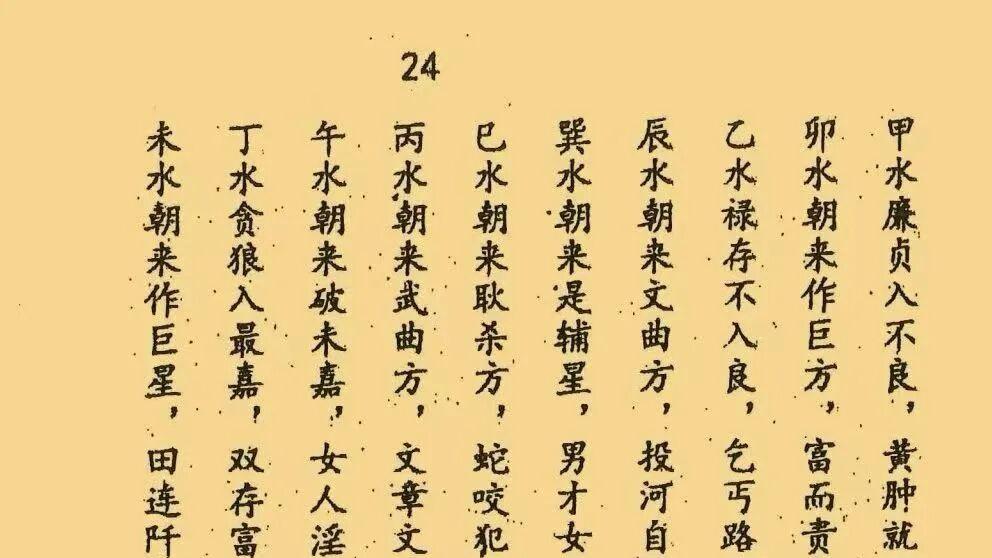 24
甲水廉贞入不良，黄肿就
卯水朝来作巨方，富而贵
乙水禄存不入良，乞丐路
辰水朝来文曲方，投河自
巽水朝来是辅星，男才女
巳水朝来耿杀方，蛇咬犯
丙水朝来武曲方，文章文
午水朝来破未嘉，女人淫
丁水贪狼入最嘉，双存富
未水朝来作巨星，田连阡